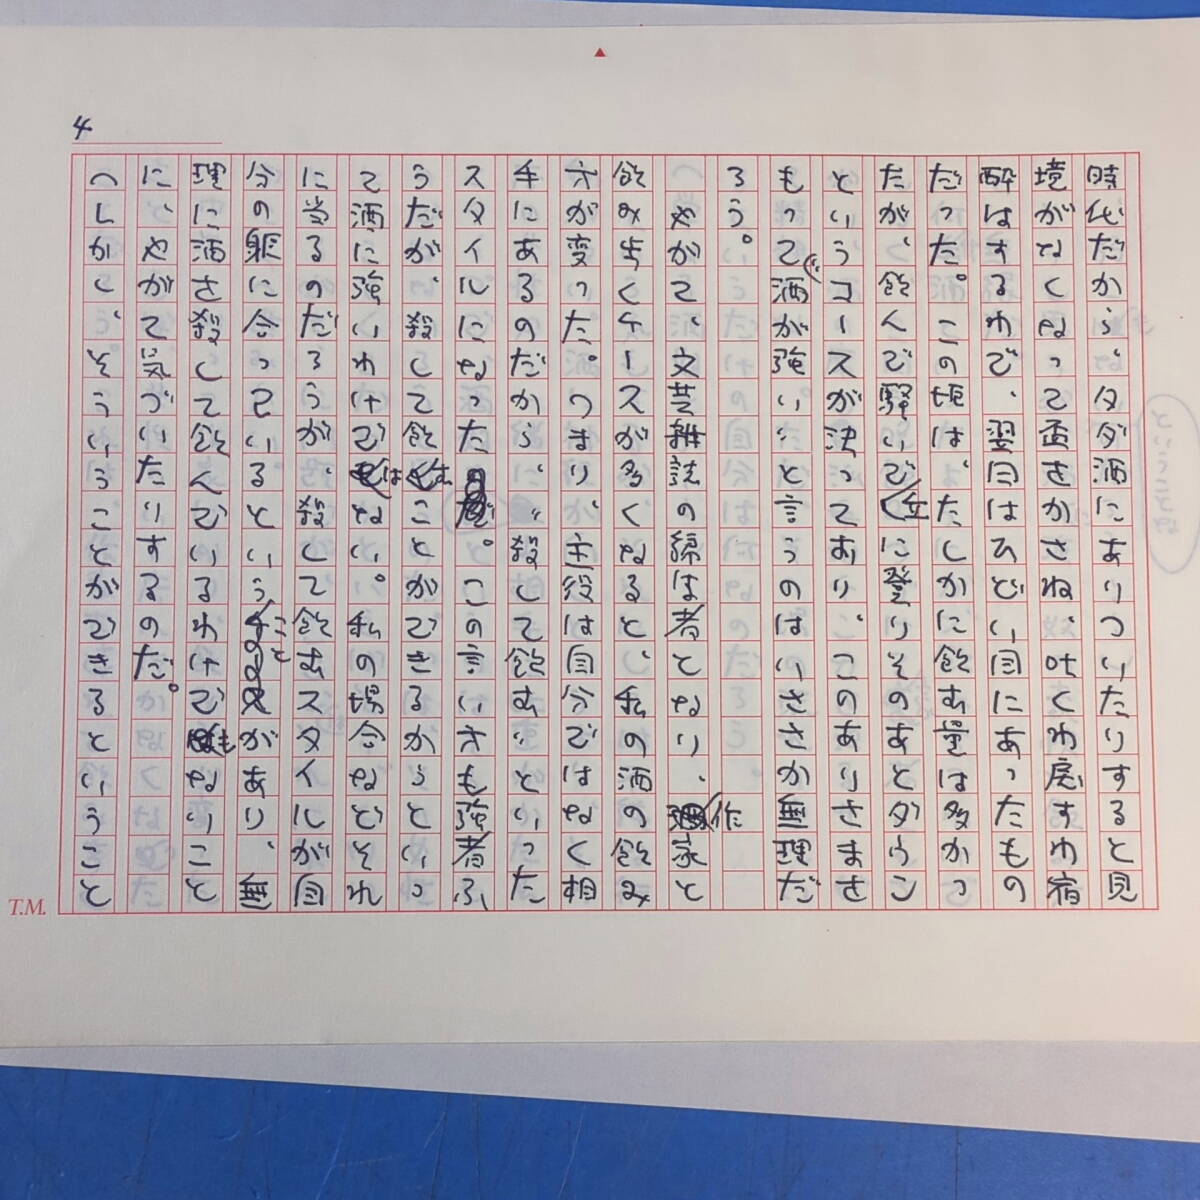 4
時代だから、タダ酒にありついたりすると見
境がなくなって盃をかさね、吐くわ戻すわ宿
酔はするわで、翌日はひどい目にあったもの
だった。この頃は、たしかに飲む量は多かっ
たが、飲んで騒いで に登りそのあとダウン
というコースが決っており、このありさまを
もって“酒が強い”と言うのはいささか無理だ
ろう。
やがて、文芸雑誌の編集者となり、作家と
飲み歩くケースが多くなると、私の酒の飲み
方が変った。つまり、主役は自分ではなく相
手にあるのだから、“殺して飲む”といった
スタイルになった 。この言い方も強者ふ
うだが、殺して飲むことができるからといっ
て酒に強いわけではない。私の場合などそれ
に当るのだろうが、殺して飲むスタイルが自
分の躯に合っているということがあり、無
理に酒を殺して飲んでいるわけでもないこと
に、やがて気づいたりするのだ。
（しかし、そういうことができるということ
T.M.